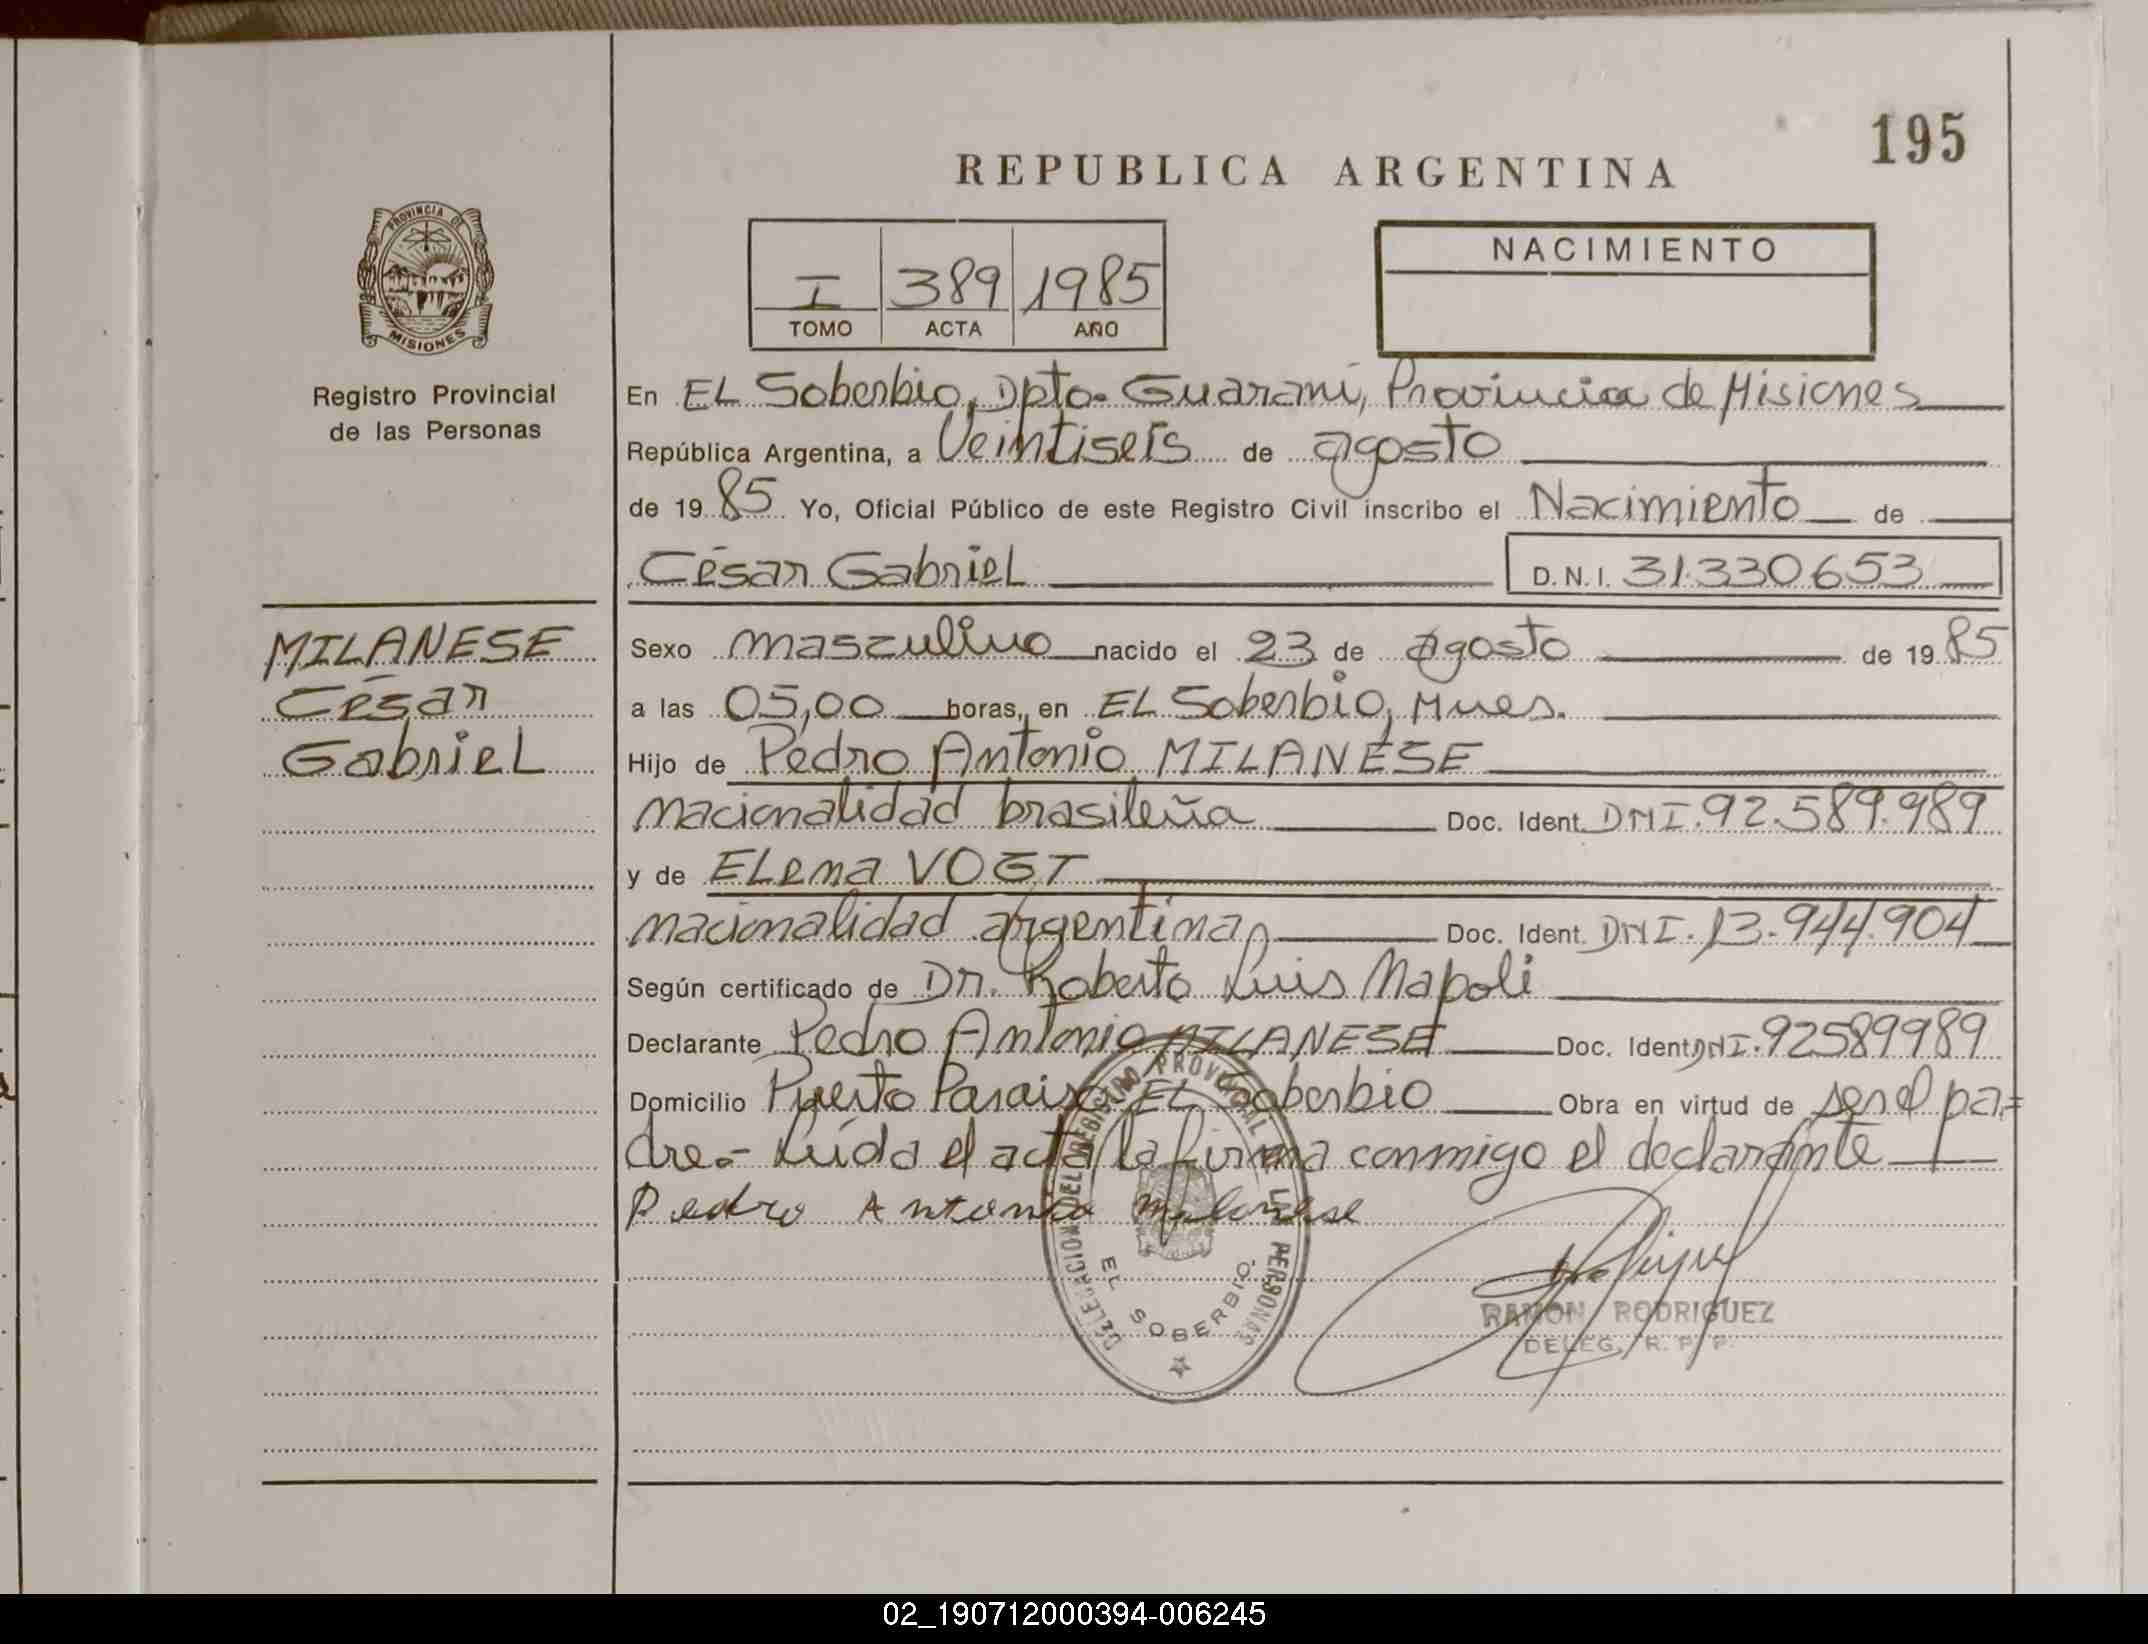 195
REPUBLICA ARGENTINA
PROVINCIA DE
MISIONES
Registro Provincial
de las Personas
I 389 1985
TOMO ACTA AÑO
NACIMIENTO
En EL Soberbio, Dpto. Guaraní, Provincia de Misiones
República Argentina, a Veintiseis de agosto
de 1985 Yo, Oficial Público de este Registro Civil inscribo el Nacimiento de
César Gabriel D.N.I. 31.330653
MILANESE
César
Gabriel
Sexo masculino nacido el 23 de agosto de 1985
a las 05,00 horas, en EL Soberbio, Mnes.
Hijo de Pedro Antonio MILANESE
nacionalidad brasileña Doc. Ident. DNI.92.589.989
y de ELena VOGT
nacionalidad argentina Doc. Ident. DNI.13.944.904
Según certificado de Dr. Roberto Luis Napoli
Declarante Pedro Antonio MILANESE Doc. Ident. DNI.92589989
Domicilio Puerto Paraiso EL Soberbio Obra en virtud de ser el pa=
dre.- Leída el acta la firma conmigo el declarante
Pedro Antonio Milanese
DELEGACION DEL REGISTRO PROVINCIAL DE LAS PERSONAS
EL SOBERBIO
RAMON RODRIGUEZ
DELEG. R. P. P.
02_190712000394-006245